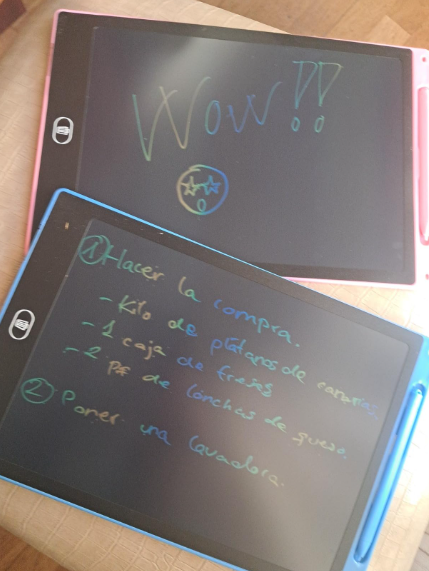 Wow!!
① Hacer la compra.
- Kilo de plátanos de canarias.
- 1 caja de fresas
- 2 de lonchas de queso.
② Poner una lavadora.